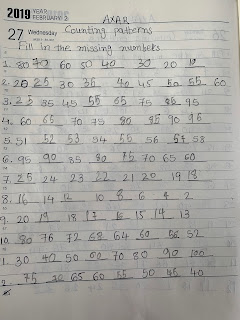 2019 YEAR FEBRUARY 2 AXAR
27 Wednesday Counting patterns
Fill in the missing numbers
1. 80 70 60 50 40 30 20 10
2. 20 25 30 35 40 45 50 55 60
3. 25 35 45 55 65 75 85 95
4. 60 65 70 75 80 85 90 95
5. 51 52 53 54 55 56 57 58
6. 95 90 85 80 75 70 65 60
7. 25 24 23 22 21 20 19 18
8. 16 14 12 10 8 6 4 2
9. 20 19 18 17 16 15 14 13
10. 80 76 72 68 64 60 56 52
1. 30 40 50 60 70 80 90 100
2. 75 65 60 55 50 45 40